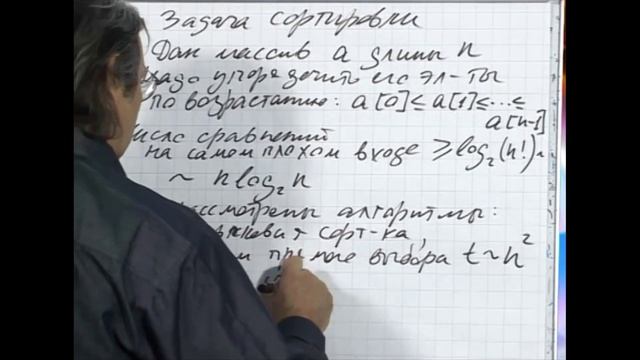 Задача сортировки
Дан массив a длины n
надо упорядочить его эл-ты
по возрастанию: a[0]≤a[1]≤...≤
a[n-1]
число сравнений
на самом плохом входе ≥log₂(n!)~
~ n log₂ n
рассмотрены алгоритмы:
сорт-ка,
прямого выбора t~n²